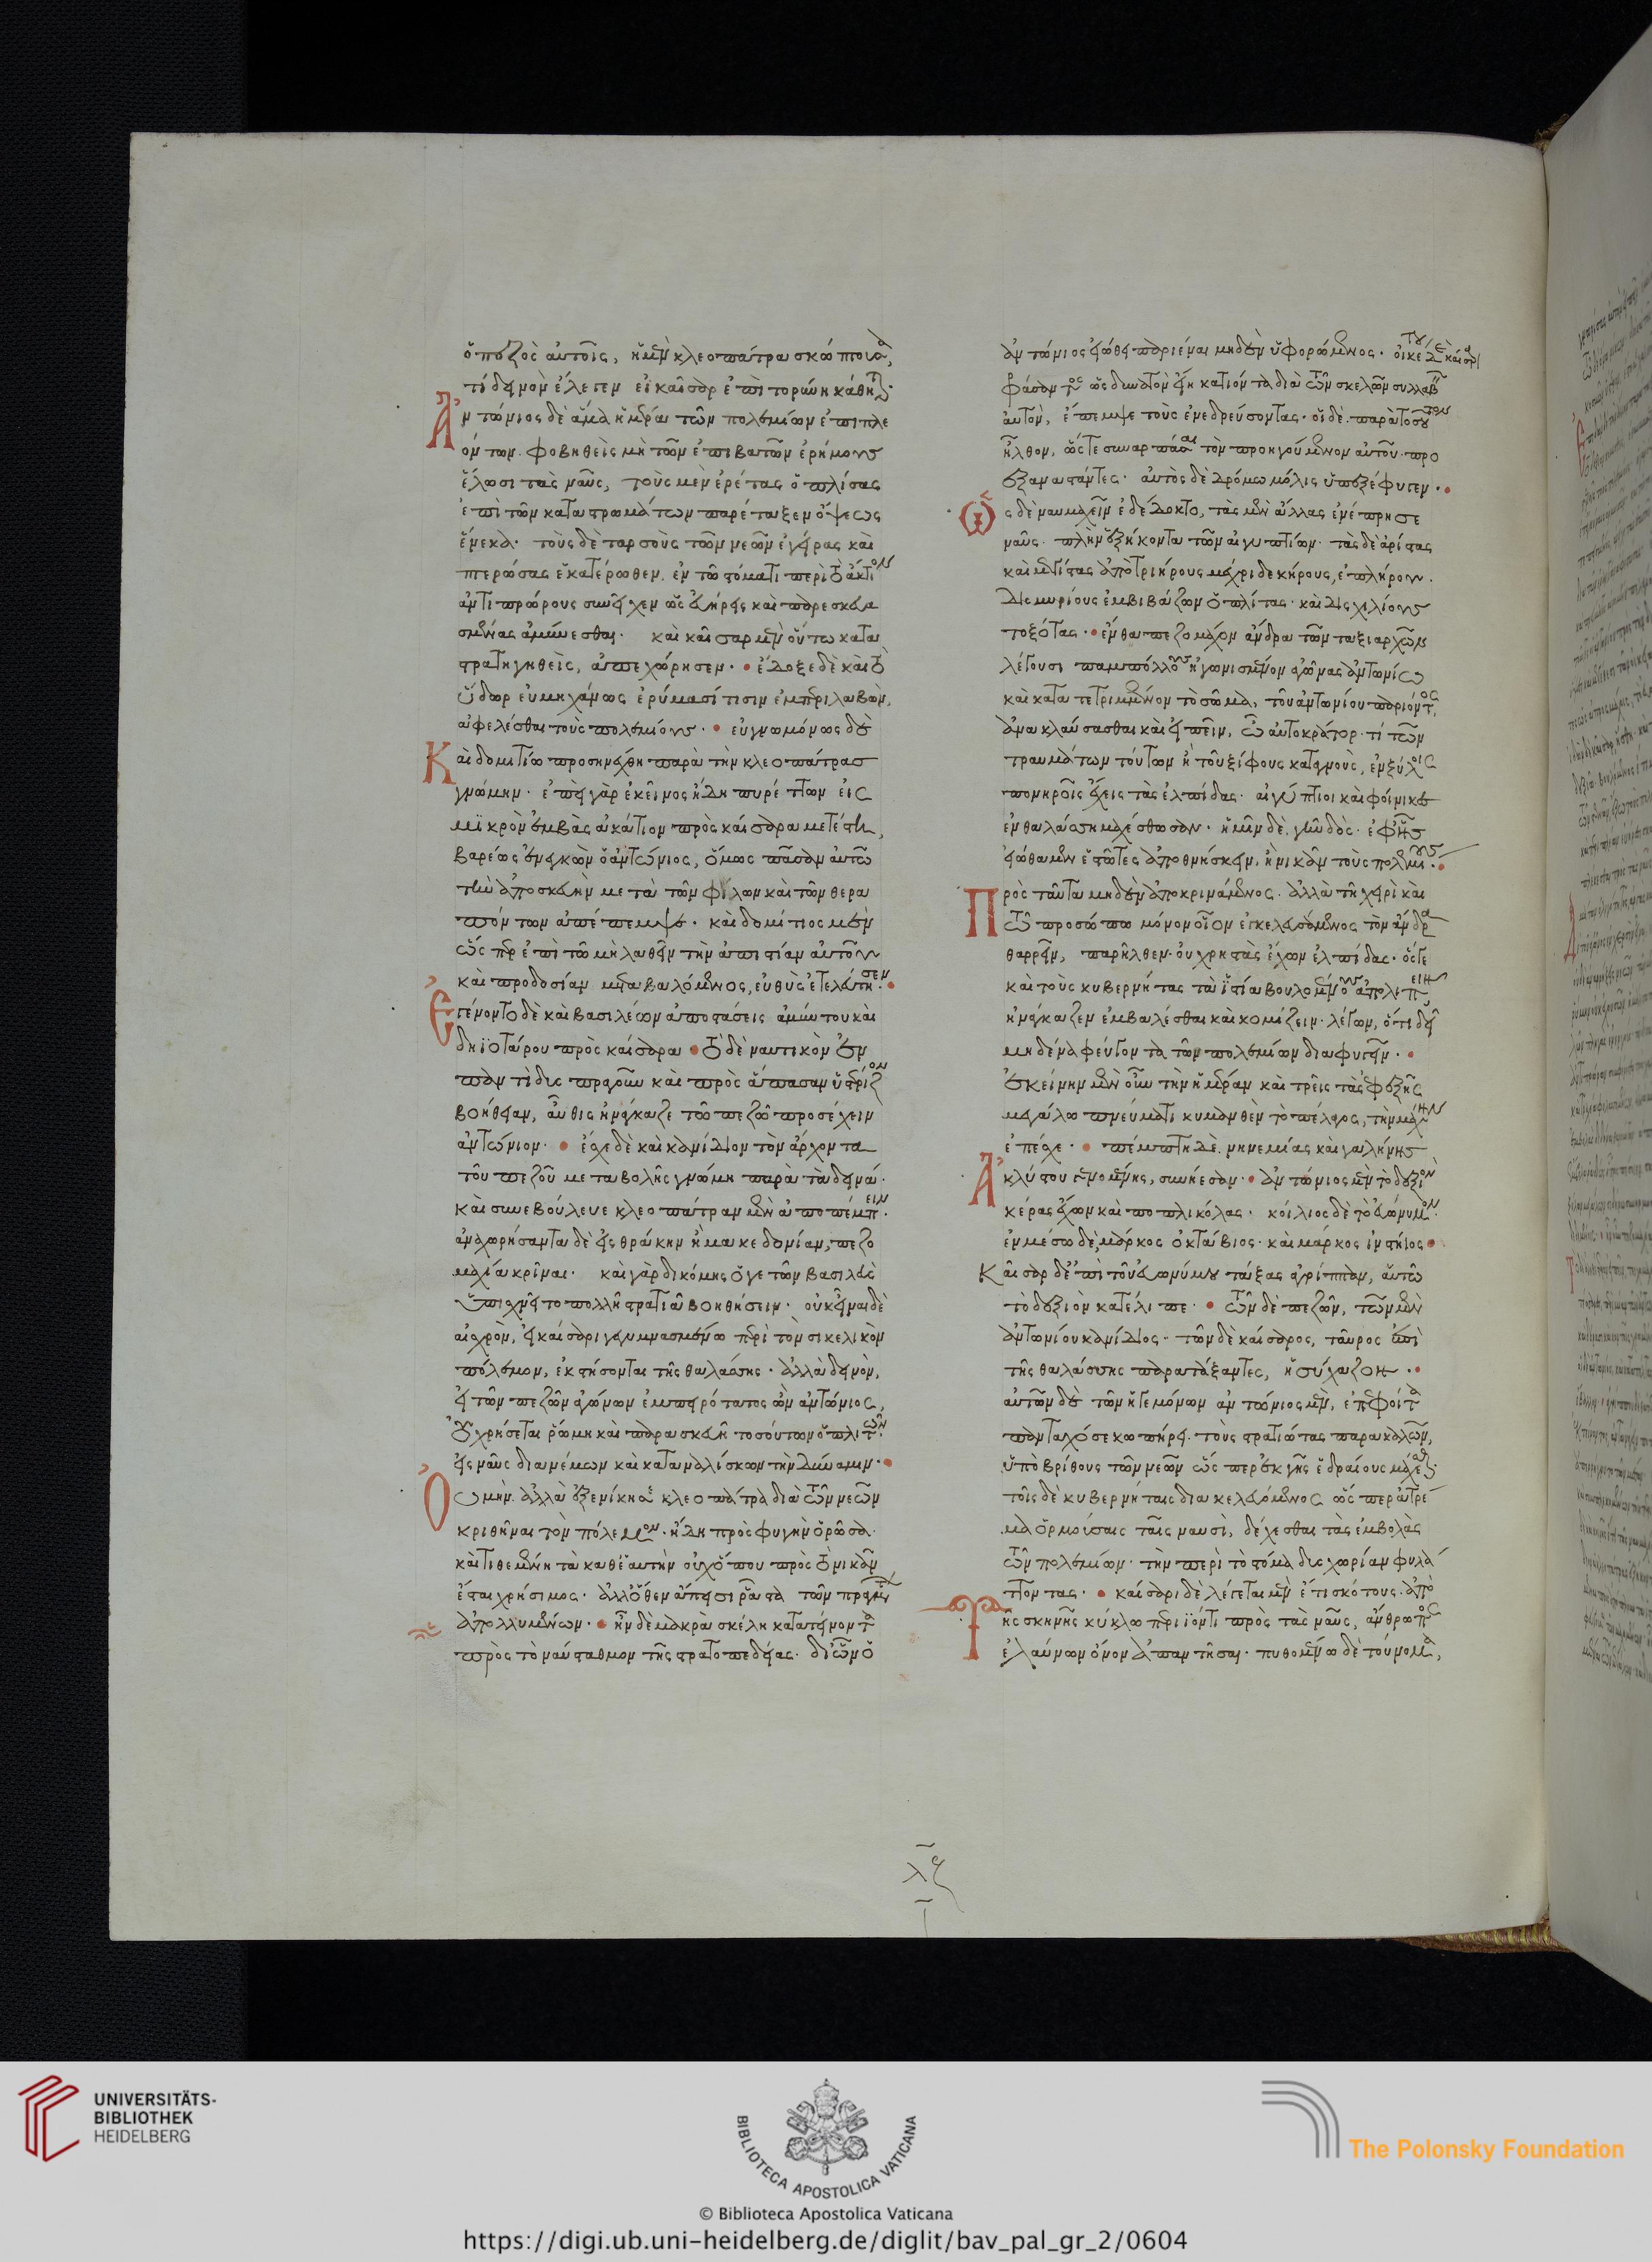 ὁ πεζὸς αὐτοῖς, ἡ μὲν κλεοπάτρα σκώπτουσα,
τί δεινὸν ἔλεγεν εἰ καῖσαρ ἐπὶ τορύνη κάθηται·
Ἀντώνιος δὲ ἅμα ἡμέραι τῶν πολεμίων ἐπιπλε
όντων. φοβηθεὶς μὴ τῶν ἐπιβατῶν ἐρήμους
ἕλωσι τὰς ναῦς, τοὺς μὲν ἐρέτας ὁπλίσας
ἐπὶ τῶν καταστρωμάτων παρέταξεν ὄψεως
ἕνεκα· τοὺς δὲ ταρσοὺς τῶν νεῶν ἐγείρας καὶ
πτερώσας ἑκατέρωθεν. ἐν τῶ στόματι περὶ τὸ ἄκτιον
ἀντιπρώρους συνεῖχεν ὡς ἐνήρεις καὶ παρεσκευα
σμένας ἀμύνεσθαι· καὶ καῖσαρ μὲν οὕτω κατα
στρατηγηθεὶς, ἀπεχώρησεν· ἔδοξε δὲ καὶ τὸ
ὕδωρ εὐμηχάνως ἐρύμασί τισιν ἐμπεριλαβὼν,
ἀφελέσθαι τοὺς πολεμίους· εὐγνωμόνως δὲ
Καὶ δομιτίω προσηνέχθη παρὰ τὴν κλεοπάτρας
γνώμην· ἐπεὶ γὰρ ἐκεῖνος ἤδη πυρέττων εἰς
μϊκρὸν ἐμβὰς ἀκάτιον πρὸς καίσαρα μετέστη,
βαρέως ἐνεγκὼν ὁ ἀντώνιος, ὅμως πᾶσαν αὐτῶ
τὴν ἀποσκευὴν μετὰ τῶν φίλων καὶ τῶν θερα
πόντων ἀπέπεμψε· καὶ δομίτιος μὲν
ὥσπερ ἐπὶ τῶ μὴ λαθεῖν τὴν ἀπιστίαν αὐτοῦ
καὶ προδοσίαν μεταβαλόμενος, εὐθὺς ἐτελεύτησεν·
Ἐγένοντο δὲ καὶ βασιλέων ἀποστάσεις ἀμύντου καὶ
δηϊοτάρου πρὸς καίσαρα τὸ δὲ ναυτικὸν ἐν
παντὶ δυσπραγοῦν καὶ πρὸς ἅπασαν ὑστερίζον
βοήθειαν, αὖθις ἠνάγκαζε τῶ πεζῶ προσέχειν
ἀντώνιον· ἔσχε δὲ καὶ κανίδιον τὸν ἄρχοντα
τοῦ πεζοῦ μεταβολῆς γνώμη παρὰ τὰ δεινά·
καὶ συνεβούλευε κλεοπάτραν μὲν ἀποπέμπειν·
ἀναχωρήσαντα δὲ εἰς θράκην ἢ μακεδονίαν, πεζο
μαχία κρῖναι· καὶ γὰρ δικόμης ὅγε τῶν βασιλεὺς
ὑπισχνεῖτο πολλῆ στρατιᾶ βοηθήσειν· οὐκ εἶναι δὲ
αἰσχρὸν, εἰ καίσαρι γεγυμνασμένω περὶ τὸν σικελικὸν
πόλεμον, ἐκστήσονται τῆς θαλάσσης· ἀλλὰ δεινὸν,
εἰ τῶν πεζῶν ἀγώνων ἐμπειρότατος ὢν ἀντώνιος,
οὐ χρήσεται ῥώμη καὶ παρασκευῆ τοσούτων ὁπλιτῶν·
εἰς ναῦς διανέμων καὶ καταναλίσκων τὴν δύναμιν·
Οὐ μὴν ἀλλὰ ἐξενίκησε κλεοπάτρα διὰ τῶν νεῶν
κριθῆναι τὸν πόλεμον· ἤδη πρὸς φυγὴν ὁρῶσα·
καὶ τιθεμένη τὰ καθ' ἑαυτὴν οὐχ ὅπου πρὸς τὸ νικᾶν
ἔσται χρήσιμος· ἀλλ' ὅθεν ἄπεισι ῥᾶστα τῶν πραγμάτων
ἀπολλυμένων· ἦν δὲ μακρὰ σκέλη κατατείνοντα
πρὸς τὸ ναύσταθμον τῆς στρατοπεδείας· δι' ὧν ὁ
ἀντώνιος εἰώθει παριέναι μηδὲν ὑφορώμενος· οἰκέτου δὲ καίσαρι
φράσαντος ὡς δυνατὸν εἴη κατιόντα διὰ τῶν σκελῶν συλλαβεῖν
αὐτὸν, ἔπεμψε τοὺς ἐνεδρεύσοντας· οἱ δὲ παρὰ τοσοῦτον
ἦλθον, ὥστε συναρπάσαι τὸν προηγούμενον αὐτοῦ προ
εξαναστάντες· αὐτὸς δὲ δρόμω μόλις ὑπεξέφυγεν·
Ὡς δὲ ναυμαχεῖν ἐδέδοκτο, τὰς μὲν ἄλλας ἐνέπρησε
ναῦς· πλὴν ἑξήκοντα τῶν αἰγυπτίων· τὰς δὲ ἀρίστας
καὶ μεγίστας ἀπὸ τριήρους μέχρι δεκήρους, ἐπλήρου·
δισμυρίους ἐμβιβάζων ὁπλίτας· καὶ δισχιλίους
τοξότας· ἔνθα πεζομάχον ἄνδρα τῶν ταξιαρχῶν
λέγουσι παμπόλλους ἠγωνισμένον ἀγῶνας ἀντωνίω
καὶ κατατετριμμένον τὸ σῶμα, τοῦ ἀντωνίου παριόντος,
ἀνακλαύσασθαι καὶ εἰπεῖν, ὦ αὐτοκράτορ· τί τῶν
τραυμάτων τούτων ἢ τοῦ ξίφους καταγνοὺς, ἐν ξύλοις
πονηροῖς ἔχεις τὰς ἐλπίδας· αἰγύπτιοι καὶ φοίνικες
ἐν θαλάσση μαχέσθωσαν· ἡμῖν δὲ γῆν δὸς· ἐφ' ἧς
εἰώθαμεν ἑστῶτες ἀποθνήσκειν, ἢ νικᾶν τοὺς πολεμίους·
Πρὸς ταῦτα μηδὲν ἀποκρινάμενος· ἀλλὰ τῆ χειρὶ καὶ
τῶ προσώπω μόνον οἷον ἐγκελευσάμενος τὸν ἄνδρα
θαρρεῖν, παρῆλθεν· οὐ χρηστὰς ἔχων ἐλπίδας· ὅς γε
καὶ τοὺς κυβερνήτας τὰ ἱστία βουλομένους ἀπολιπεῖν
ἠνάγκαζεν ἐμβαλέσθαι καὶ κομίζειν· λέγων, ὅτι δεῖ
μηδένα φεύγοντα τῶν πολεμίων διαφυγεῖν·
ἐκείνην μὲν οὖν τὴν ἡμέραν καὶ τρεῖς τὰς ἐφεξῆς
μεγάλω πνεύματι κυμανθὲν τὸ πέλαγος, τὴν μάχην
ἐπέσχε· πέμπτη δὲ νηνεμίας καὶ γαλήνης
Ἀκλύστου γενομένης, συνήεσαν· ἀντώνιος μὲν τὸ δεξιὸν
κέρας ἔχων καὶ ποπλικόλας· κοίλιος δὲ τὸ εὐώνυμον·
ἐν μέσω δὲ, μάρκος ὀκτάβιος· καὶ μάρκος ἰνστήιος
Καῖσαρ δ' ἐπὶ τοῦ εὐωνύμου τάξας ἀγρίππαν, αὑτῶ
τὸ δεξιὸν κατέλιπε· τῶν δὲ πεζῶν, τῶν μὲν
ἀντωνίου κανίδιος· τῶν δὲ καίσαρος, ταῦρος ἐπὶ
τῆς θαλάσσης παρατάξαντες, ἡσύχαζον·
αὐτῶν δὲ τῶν ἡγεμόνων ἀντώνιος μὲν, ἐπεφοίτα
πανταχόσε κωπήρει· τοὺς στρατιώτας παρακαλῶν,
ὑπὸ βρίθους τῶν νεῶν ὥσπερ ἐκ γῆς ἑδραίους μάχεσθαι·
τοῖς δὲ κυβερνήταις διακελευόμενος ὥσπερ ἀτρέ
μα ὁρμούσαις ταῖς ναυσὶ, δέχεσθαι τὰς ἐμβολὰς
τῶν πολεμίων· τὴν περὶ τὸ στόμα δυσχωρίαν φυλά
ττοντας· καίσαρι δὲ λέγεται μὲν ἔτι σκότους· ἀπὸ
Τῆς σκηνῆς κύκλω περιϊόντι πρὸς τὰς ναῦς, ἄνθρωπος
ἐλαύνων ὄνον ἀπαντῆσαι· πυθομένω δὲ τοὔνομα,
λζ
UNIVERSITÄTS-
BIBLIOTHEK
HEIDELBERG
BIBLIOTECA APOSTOLICA VATICANA
The Polonsky Foundation
© Biblioteca Apostolica Vaticana
https://digi.ub.uni-heidelberg.de/diglit/bav_pal_gr_2/0604